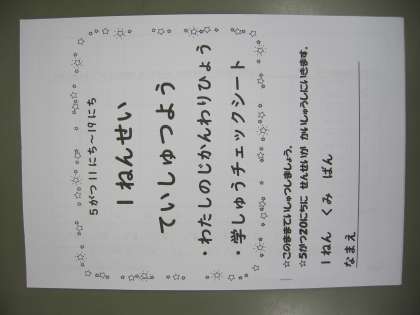 5がつ11にち～19にち
1ねんせい
ていしゅつよう
・わたしのじかんわりひょう
・学しゅうチェックシート
☆このままていしゅつしましょう。
☆5がつ20にちに せんせいが かいしゅうしにいきます。
1ねん くみ ばん
なまえ